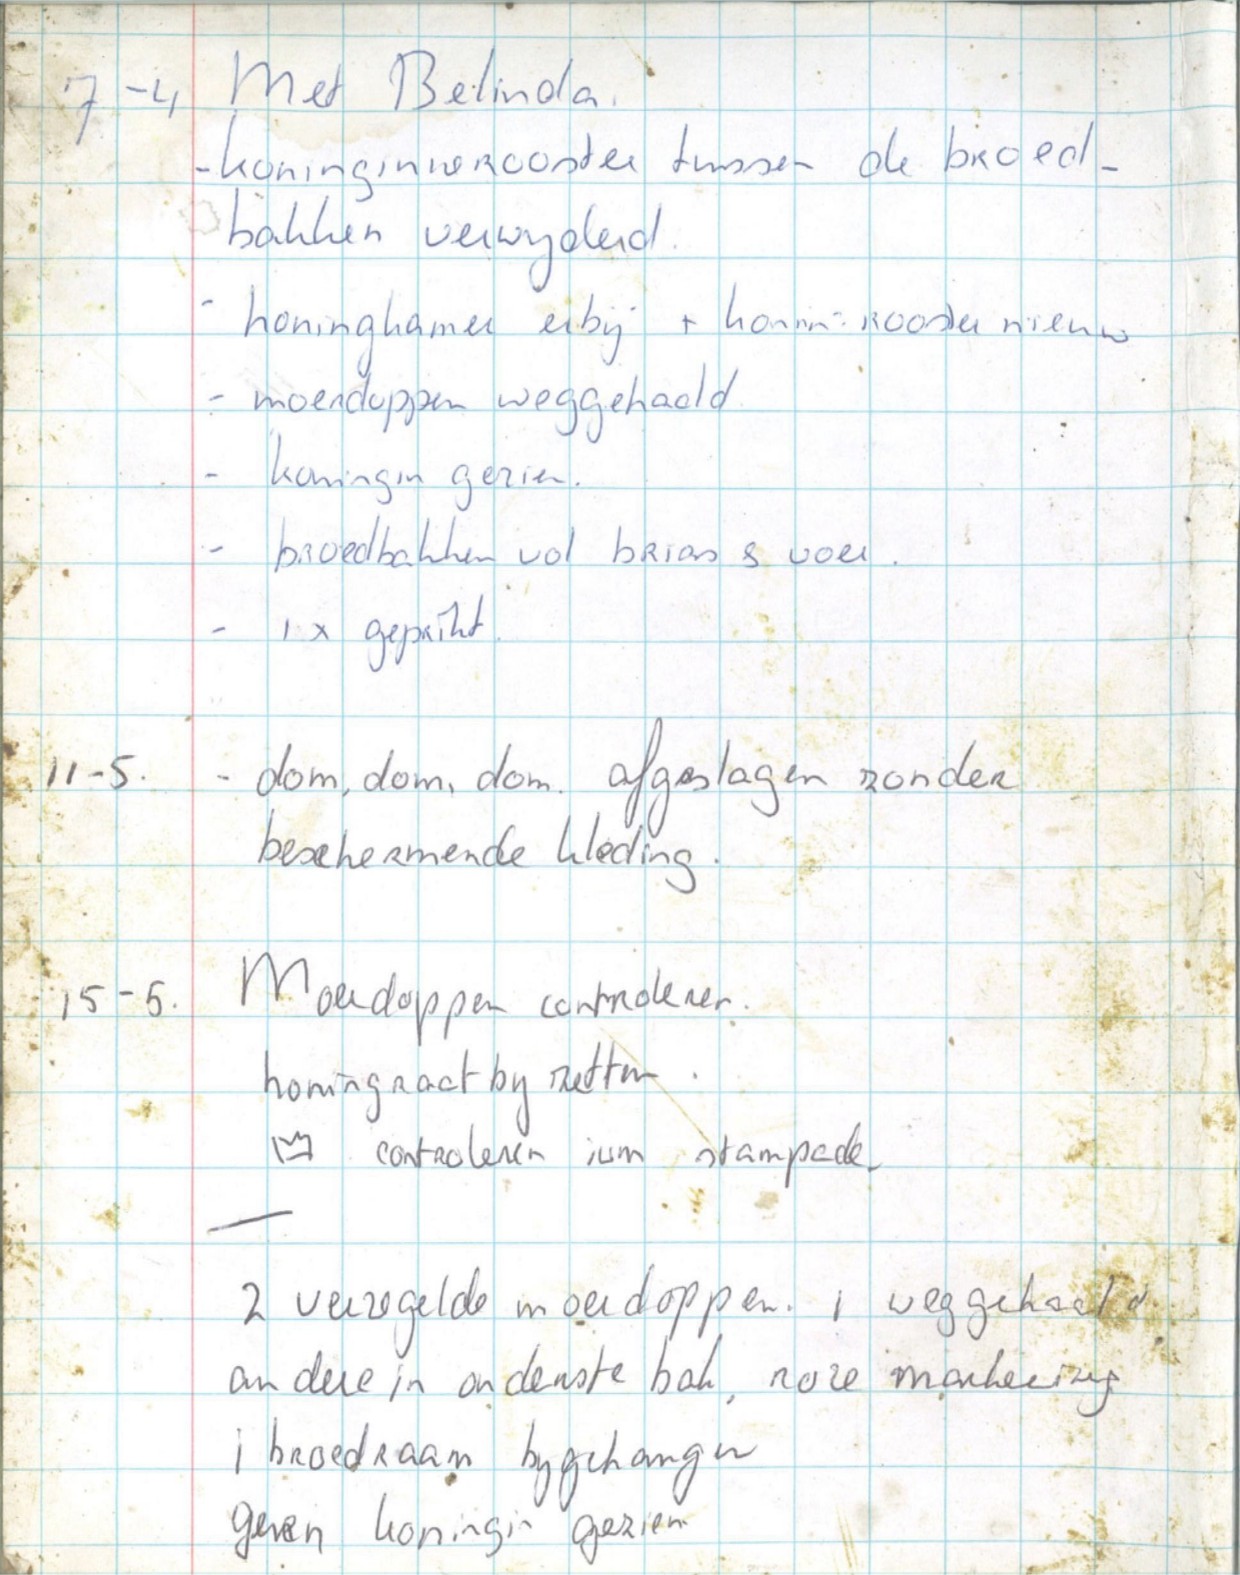 7-4 Met Belinda.
- koninginnerooster tussen de broed-
bakken verwyderd.
- honingkamer erbij + konin. rooster nieuw
- moerdoppen weggehaald.
- koningin gezien.
- broedbakken vol brias & voer.
- 1 x geprikt.
11-5. - dom, dom, dom. afgeslagen zonder
beschermende kleding.
15-5. Moerdoppen controleren.
honingraat by zetten.
controleren ivm stampede
2 verzegelde moerdoppen. 1 weggehaald
andere in onderste bak, roze markering
1 broedraam bygehangen
geen koningin gezien